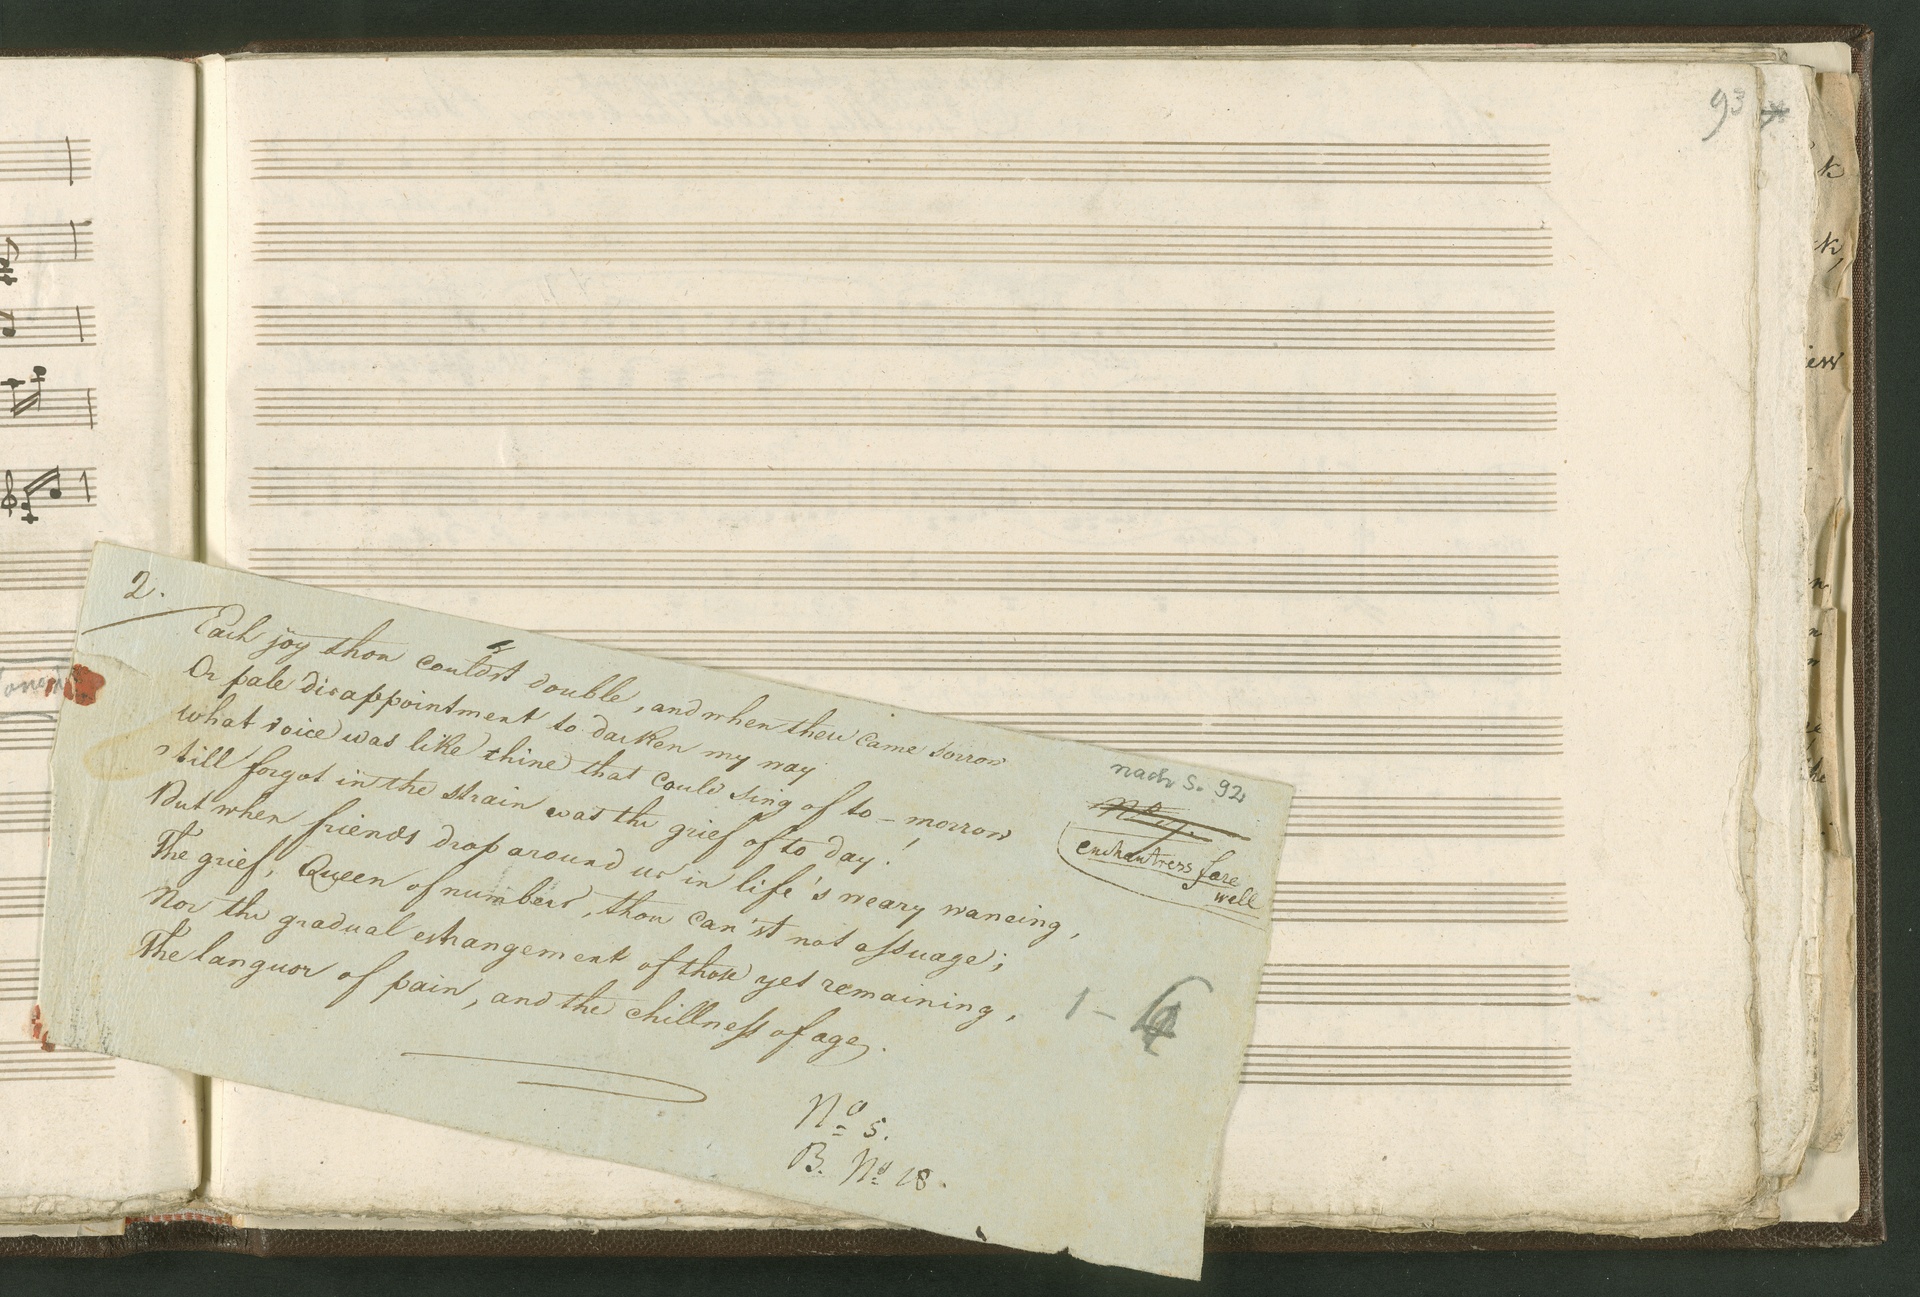 93
2.
Each joy thou could'st double, and when theu came sorrow
Or pale disappointment to darken my way
What voice was like thine that could sing of to-morrow
still forgot in the strain was the grief of to day!
But when friends drop around us in life's weary waneing,
The grief, Queen of numbers, thou can'st not assuage;
Nor the gradual estrangement of those yet remaining,
The languor of pain, and the chillness of age.
nach S. 92
enchantress fare
well
1 - 4
No 5.
B. No 18.